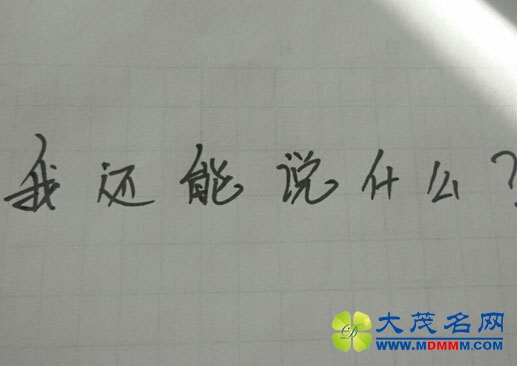 我还能说什么?
大茂名网
WWW.MDMMM.COM